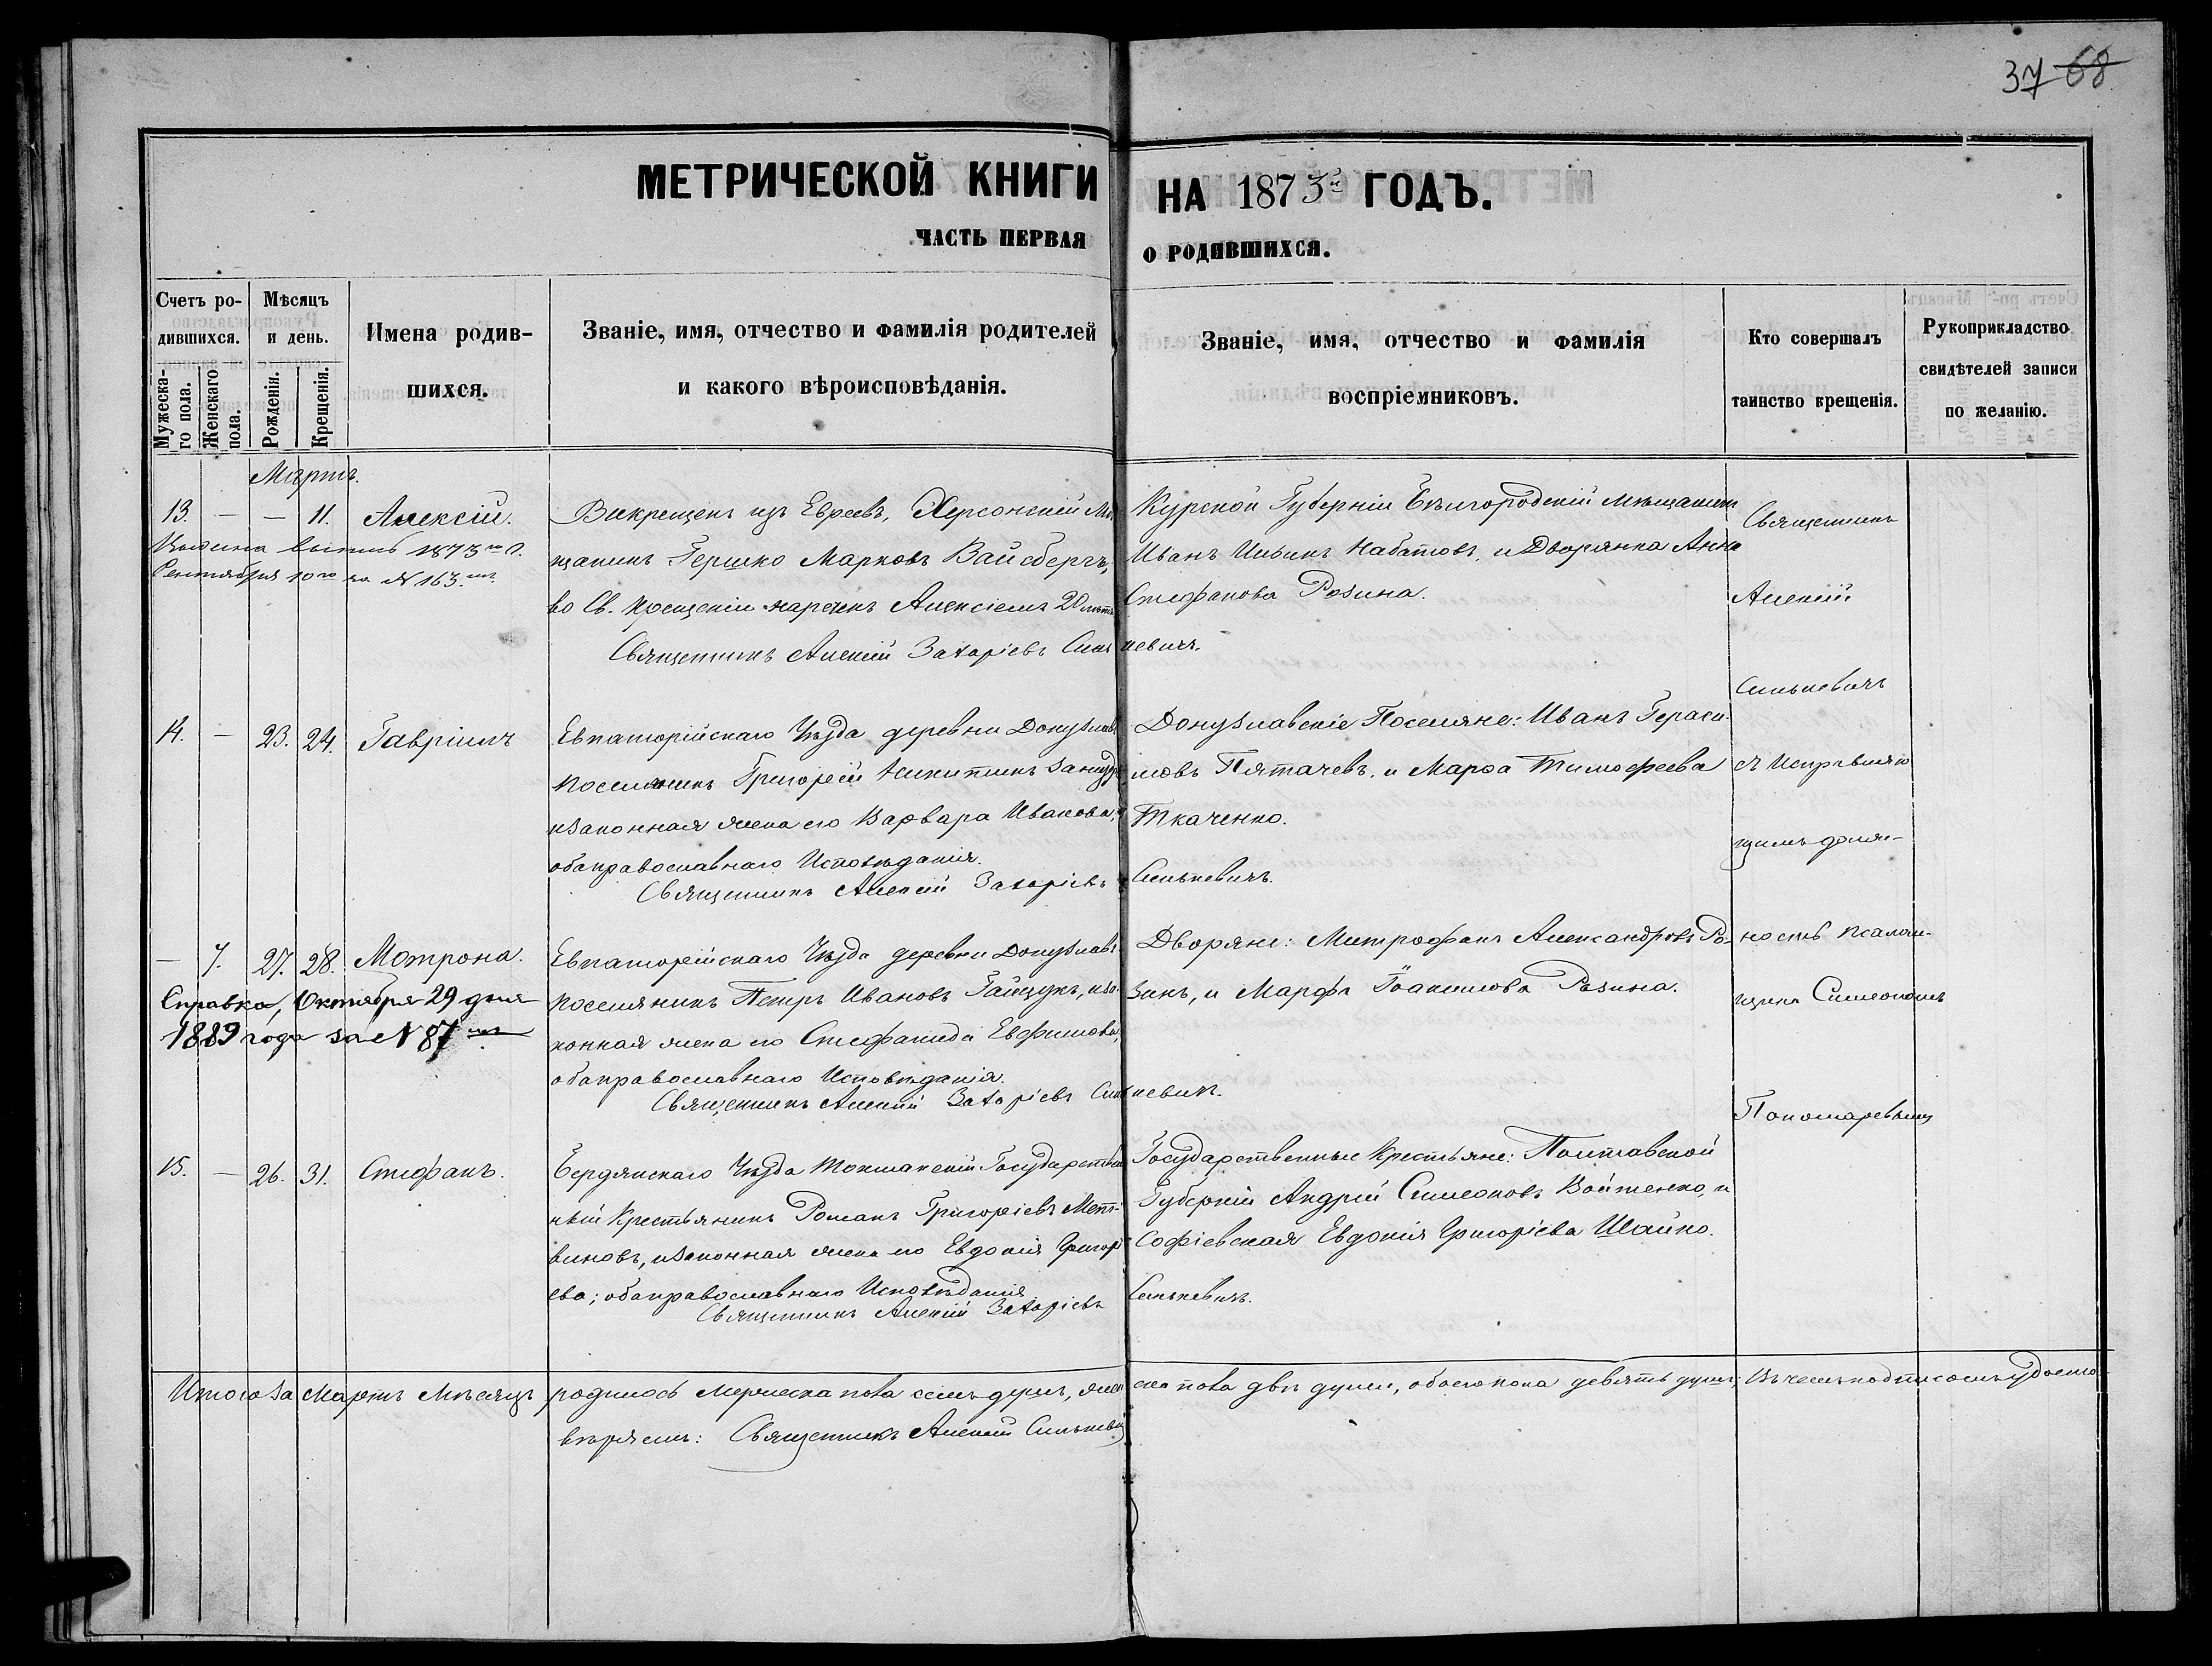 37 68
МЕТРИЧЕСКОЙ КНИГИ НА 1873й ГОДЪ.
ЧАСТЬ ПЕРВАЯ О РОДИВШИХСЯ.
Счетъ родившихся.
Мужескаго пола.
Женскаго пола.
Мѣсяцъ и день.
Рожденія.
Крещенія.
Имена родив-
шихся.
Званіе, имя, отчество и фамилія родителей
и какого вѣроисповѣданія.
Званіе, имя, отчество и фамилія
воспріемниковъ.
Кто совершалъ
таинство крещенія.
Рукоприкладство
свидѣтелей записи
по желанію.
Мартъ.
13. — — 11. Алексій.
1873го
Сентября 10го за № 163.мъ
изъ Евреевъ, Херсонскій Мѣ-
щанинъ Гершко Марковъ Вайсбергъ,
во Св. Крещеніи нареченъ Алексіемъ 20 лѣтъ
Священникъ Алексій Захаріевъ Синькевичъ.
Курской Губерніи Бѣлгородскій мѣщанинъ
Иванъ Ильинъ Набатовъ, и Дворянка Анна
Стефанова Розина.
Священникъ
Алексій
Синькевичъ
съ исправляю
щимъ долж-
ность псалом-
щика Симеономъ
Пономаревымъ
14. — 23. 24. Гавріилъ
Евпаторійскаго Уѣзда деревни Донузлавъ
поселянинъ Григорій Никитинъ
и законная жена его Варвара Иванова,
оба православнаго Исповѣданія.
Священникъ Алексій Захаріевъ Синькевичъ.
Донузлавскіе Поселяне: Иванъ Гераси-
мовъ Пятачевъ, и Марѳа Тимофеева
Ткаченко.
— 7. 27. 28. Мотрона.
Справка, Октября 29 дня
1889 года за № 87мъ
Евпаторійскаго Уѣзда деревни Донузлавъ
поселянинъ Петръ Ивановъ Гайдукъ, и за-
конная жена его Стефанида Евфимова,
оба православнаго Исповѣданія.
Священникъ Алексій Захаріевъ Синькевичъ.
Дворяне: Митрофанъ Александровъ Ро-
зинъ, и Марфа Іоакимова Розина.
15. — 26. 31. Стефанъ.
Бердянскаго Уѣзда Токмакскій Государствен-
ный Крестьянинъ Романъ Григоріевъ
виновъ, и законная жена его Евдокія Григорі-
ева; оба православнаго Исповѣданія
Священникъ Алексій Захаріевъ Синькевичъ.
Государственные Крестьяне: Полтавской
Губерніи Андрей Симеоновъ Войтенко, и
Софіевская Евдокія Григоріева Шайко.
Итого за Мартъ Мѣсяцъ родилось мужеска пола семь душъ, женска пола двѣ души, обоего пола девять душъ; Въ чемъ подписомъ удосто-
вѣряемъ: Священникъ Алексій Синькевичъ